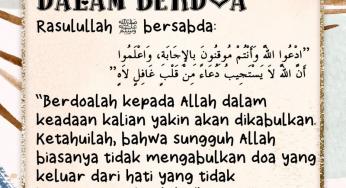 DALAM BERDOA
Rasulullah ﷺ bersabda:
"ادْعُوا اللَّهَ وَأَنْتُمْ مُوقِنُونَ بِالإِجَابَةِ، وَاعْلَمُوا
أَنَّ اللَّهَ لَا يَسْتَجِيبُ دُعَاءً مِنْ قَلْبٍ غَافِلٍ لَاهٍ"
"Berdoalah kepada Allah dalam
keadaan kalian yakin akan dikabulkan.
Ketahuilah, bahwa sungguh Allah
biasanya tidak mengabulkan doa yang
keluar dari hati yang tidak